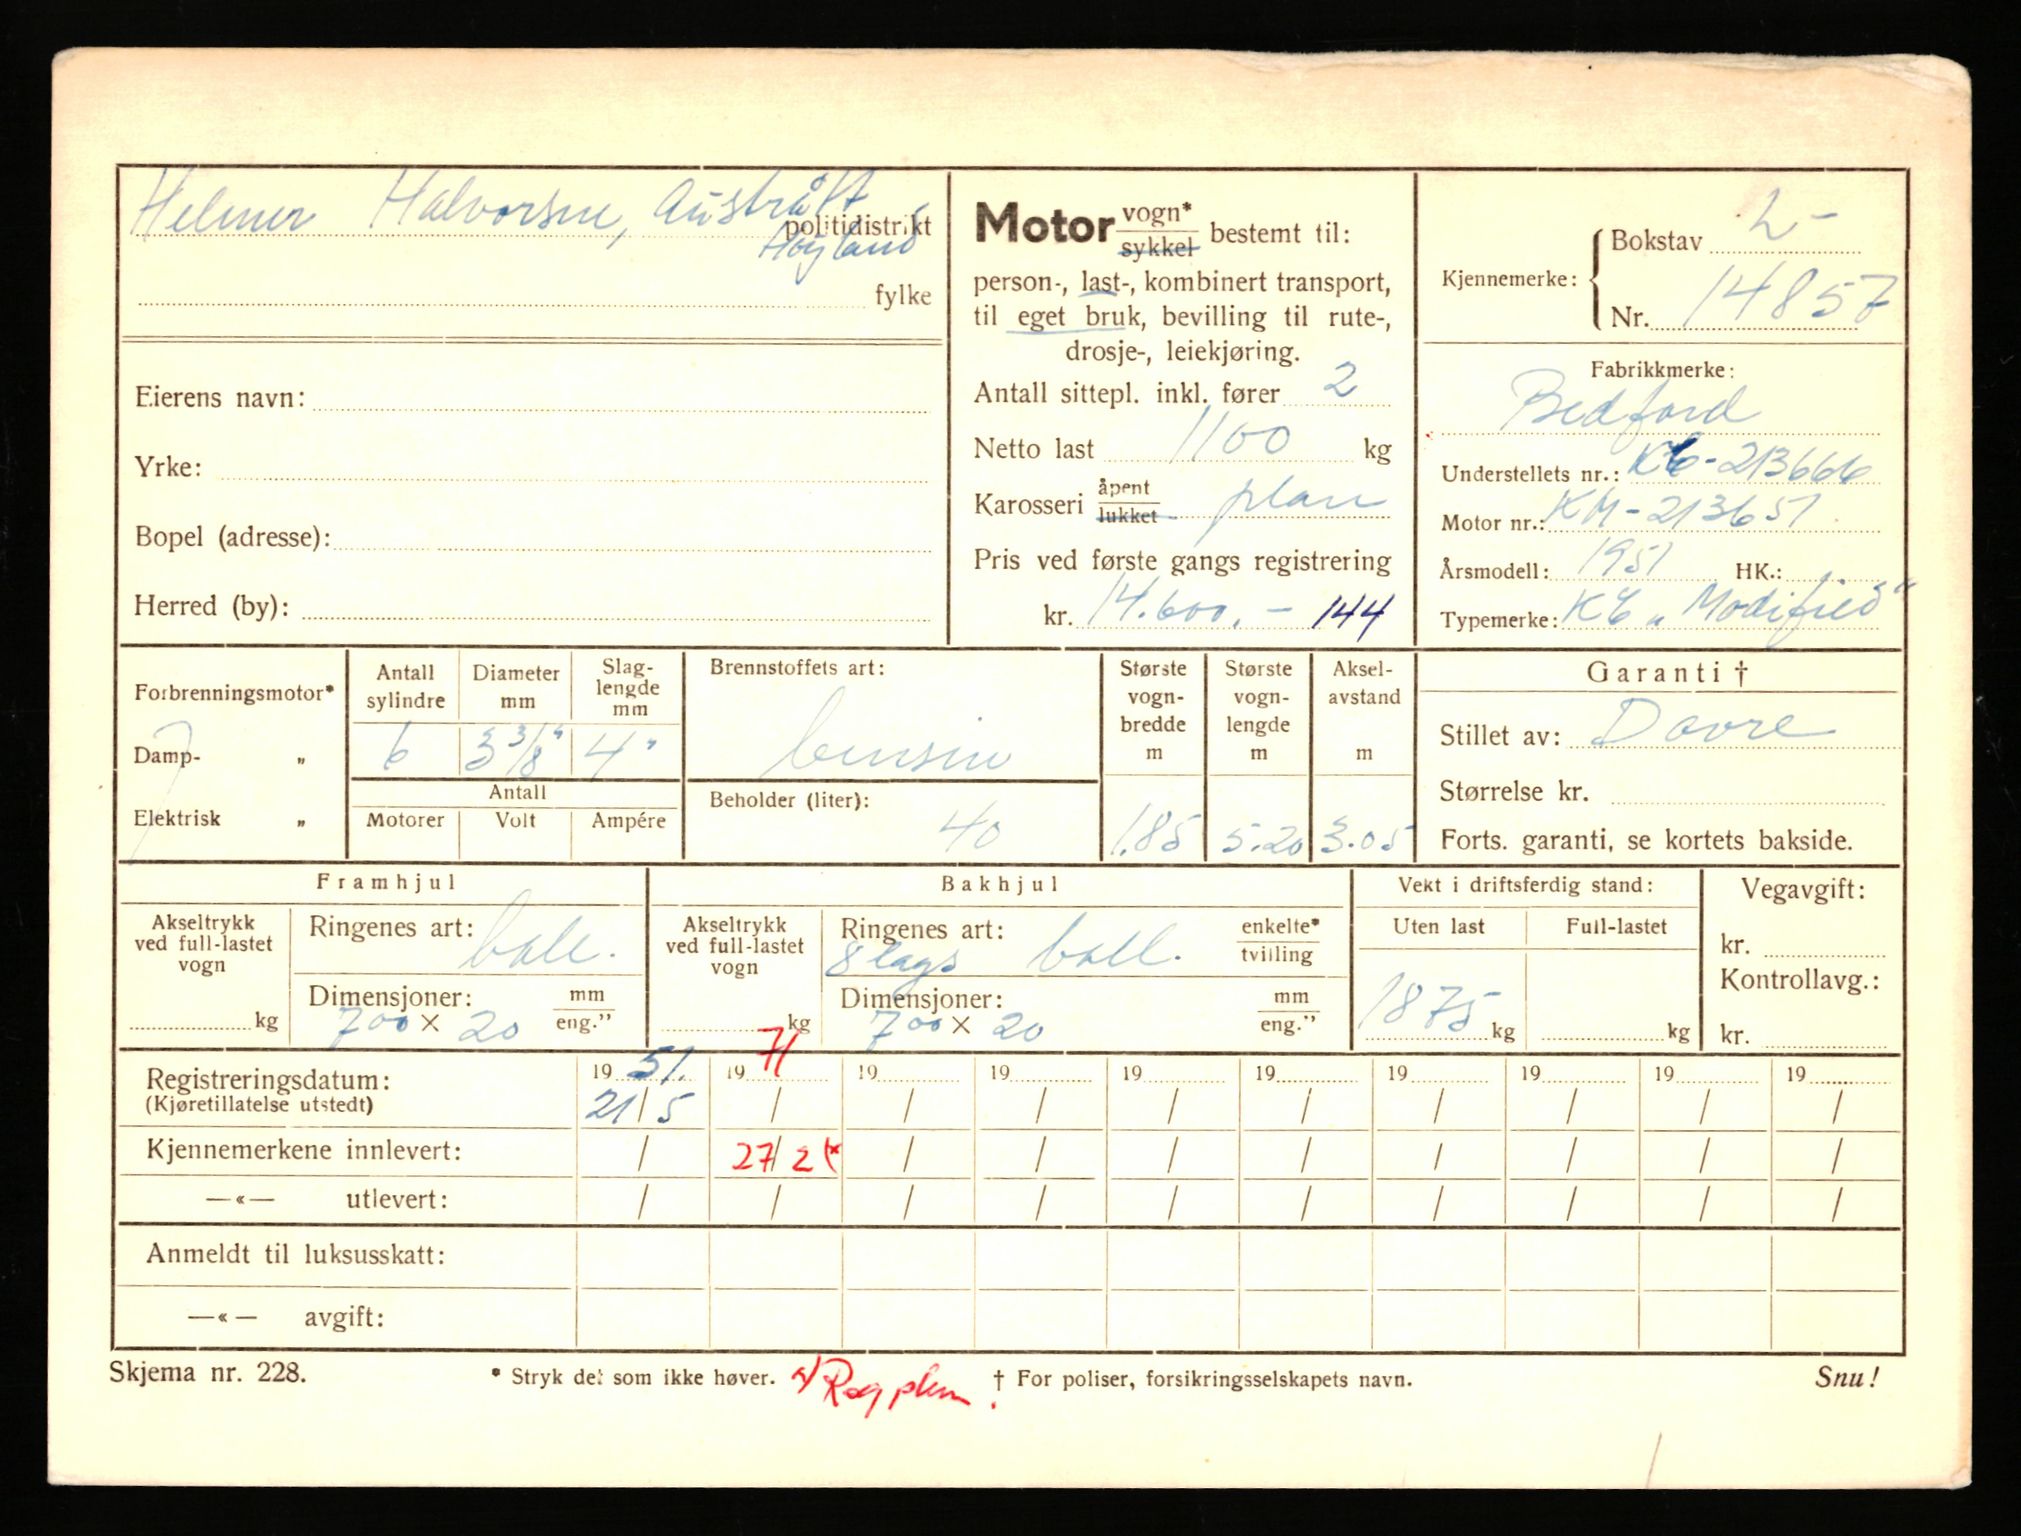 Helmer Halvorsen, Austrått
politidistrikt
Høyland
fylke
Eierens navn:
Yrke:
Bopel (adresse):
Herred (by):
Motor vogn* / sykkel bestemt til:
person-, last-, kombinert transport,
til eget bruk, bevilling til rute-,
drosje-, leiekjøring.
Antall sittepl. inkl. fører 2
Netto last 1100 kg
Karosseri åpent / lukket plan
Pris ved første gangs registrering
kr. 14.600.- 144
Kjennemerke: Bokstav L-
Nr. 14857
Fabrikkmerke:
Bedford
Understellets nr.: KC-213666
Motor nr.: KM-213651
Årsmodell: 1951 HK.:
Typemerke: KC „Modified"
Forbrenningsmotor*
Damp- „
Elektrisk „
Antall sylindre 6
Diameter mm 3 3/8"
Slaglengde mm 4"
Antall
Motorer Volt Ampére
Brennstoffets art:
bensin
Beholder (liter):
40
Største vognbredde m 1.85
Største vognlengde m 5.20
Akselavstand m 3.05
Garanti †
Stillet av: Dovre
Størrelse kr.
Forts. garanti, se kortets bakside.
Framhjul
Akseltrykk ved full-lastet vogn kg
Ringenes art: ball.
Dimensjoner: mm / eng."
700 x 20
Bakhjul
Akseltrykk ved full-lastet vogn kg
Ringenes art: enkelte* / tvilling
8 lags ball.
Dimensjoner: mm / eng."
700 x 20
Vekt i driftsferdig stand:
Uten last Full-lastet
1875 kg kg
Vegavgift:
kr.
Kontrollavg.:
kr.
Registreringsdatum: 19 51. 19 71 19 19 19 19 19 19 19 19
(Kjøretillatelse utstedt) 21/5 / / / / / / / / /
Kjennemerkene innlevert: / 27/2 (* / / / / / / / /
—«— utlevert: / / / / / / / / / /
Anmeldt til luksusskatt:
—«— avgift:
Skjema nr. 228.
* Stryk det som ikke høver.
*) Reg plen.
† For poliser, forsikringsselskapets navn.
Snu!